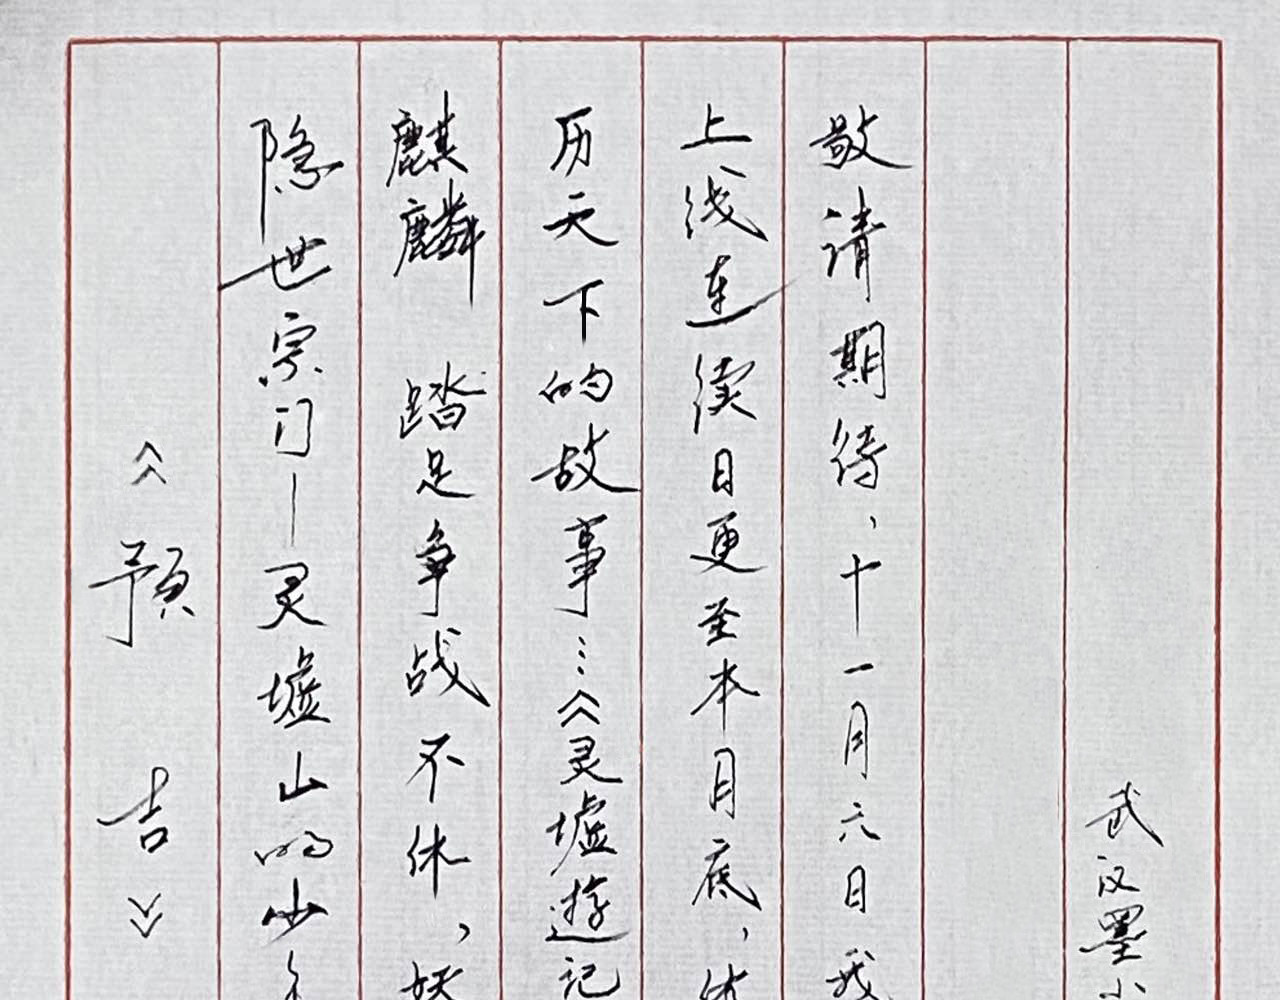 《预告》
隐世宗门—灵墟山的少
麒麟 踏足争战不休，妖
历天下的故事…《灵墟遊记
上线连续日更至本月底，
敬请期待、十一月六日我
武汉墨